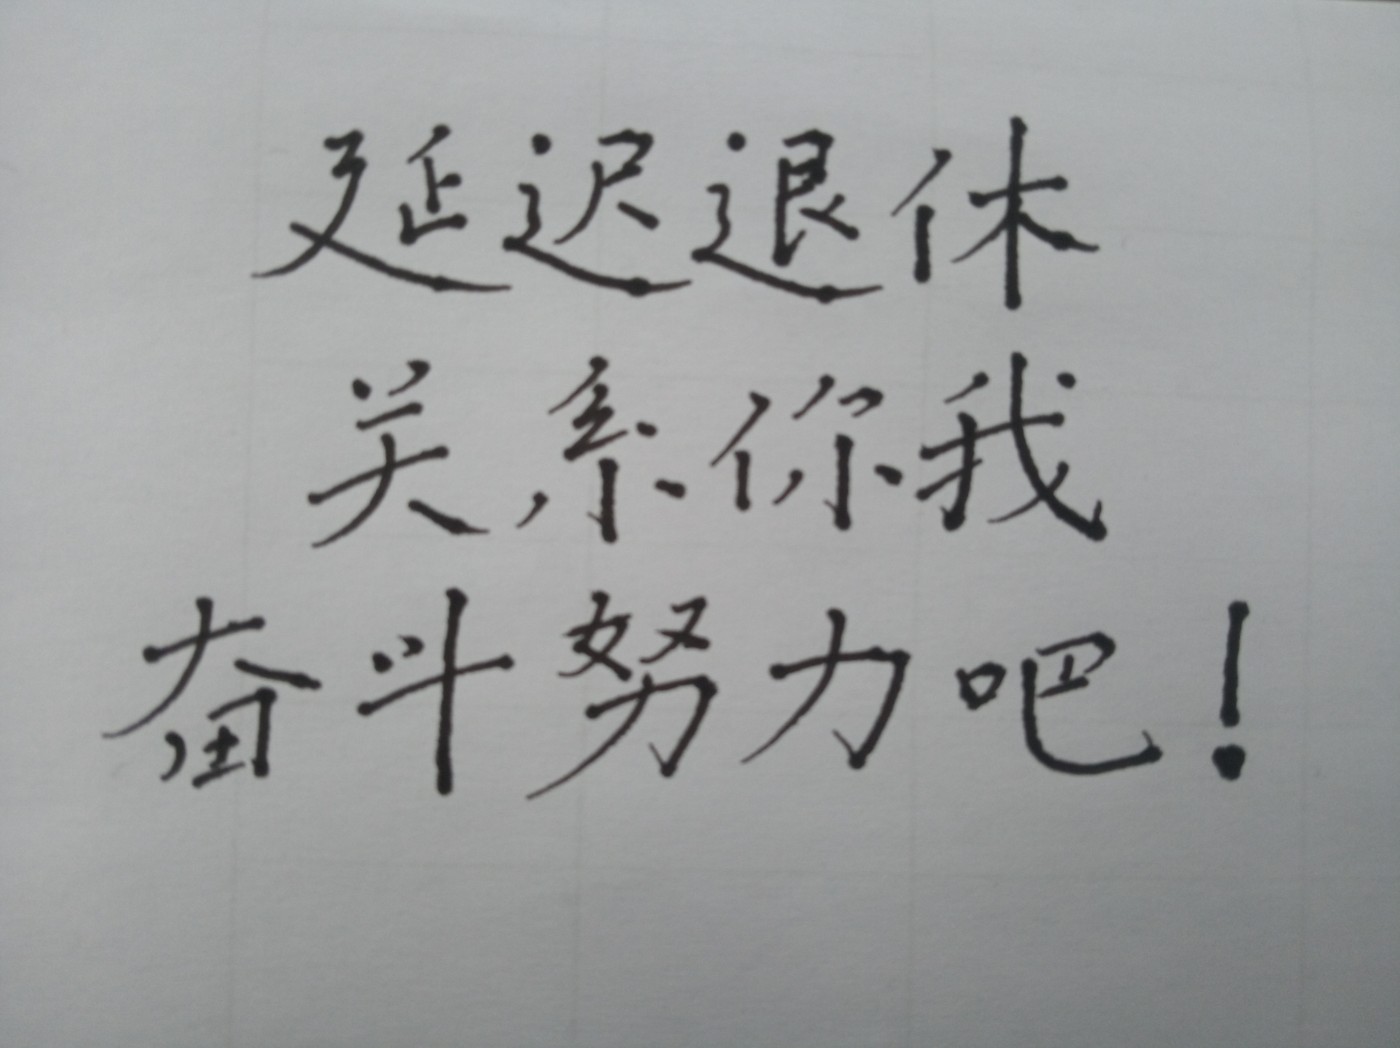 延迟退休
关系你我
奋斗努力吧!